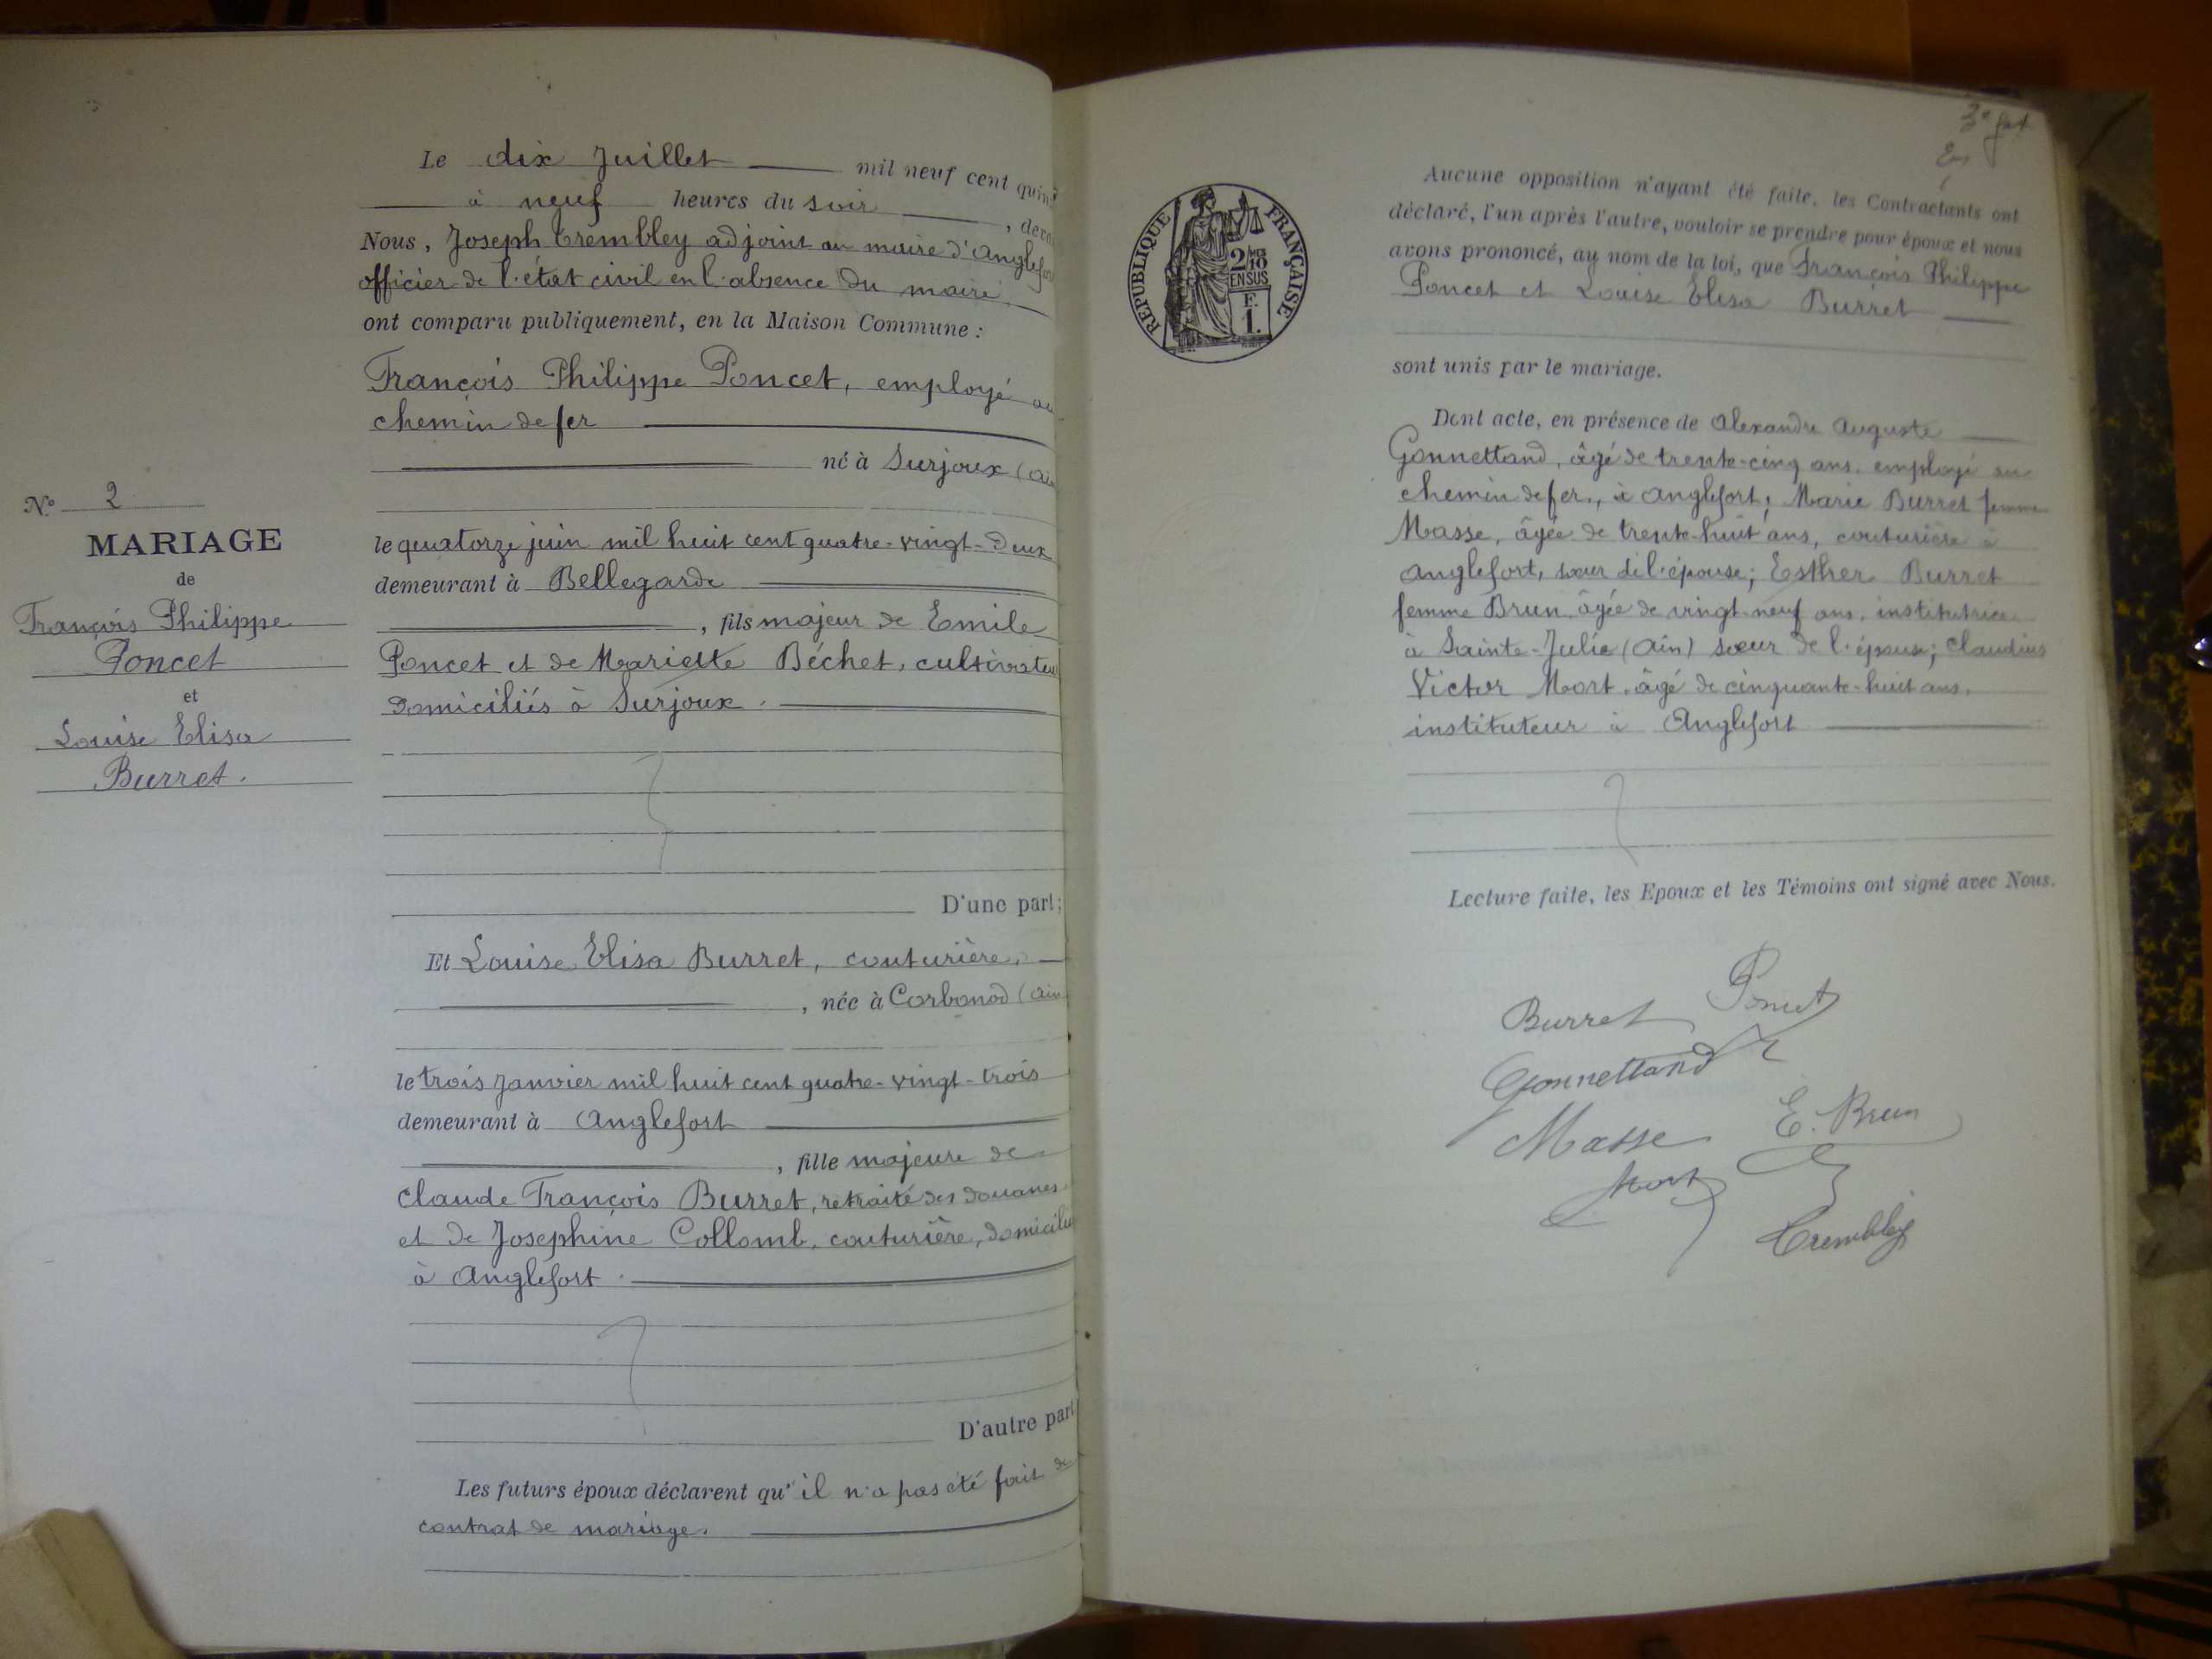 Le dix Juillet mil neuf cent quin
à neuf heures du soir, deva
Nous, Joseph Trembley adjoint au maire d'Anglefort
officier de l'état civil en l'absence du maire
ont comparu publiquement, en la Maison Commune :
François Philippe Poncet, employé au
chemin de fer
né à Surjoux (Ain
le quatorze juin mil huit cent quatre-vingt-deux
demeurant à Bellegarde
, fils majeur de Emile
Poncet et de Mariette Béchet, cultivateu
domiciliés à Surjoux.
D'une part;
Et Louise Elisa Burret, couturière,
, née à Corbonod (Ain
le trois Janvier mil huit cent quatre-vingt-trois
demeurant à Anglefort
, fille majeure de
Claude François Burret, retraité des douanes
et de Josephine Collomb, couturière, domicilié
à Anglefort.
D'autre part
Les futurs époux déclarent qu'il n'a pas été fait de
contrat de mariage.
N° 2
MARIAGE
de
François Philippe
Poncet
et
Louise Elisa
Burret.
RÉPUBLIQUE FRANÇAISE
2/10
EN SUS
F.
1.
Aucune opposition n'ayant été faite, les Contractants ont
déclaré, l'un après l'autre, vouloir se prendre pour époux et nous
avons prononcé, au nom de la loi, que François Philippe
Poncet et Louise Elisa Burret
sont unis par le mariage.
Dont acte, en présence de Alexandre Auguste
Gonnettand, âgé de trente-cinq ans, employé au
chemin de fer, à Anglefort; Marie Burret femme
Masse, âgée de trente-huit ans, couturière à
Anglefort, sœur de l'épouse; Esther Burret
femme Brun, âgée de vingt-neuf ans, institutrice
à Sainte-Julie (Ain) sœur de l'épouse; Claudius
Victor Mort, âgé de cinquante-huit ans,
instituteur à Anglefort
Lecture faite, les Epoux et les Témoins ont signé avec Nous.
Burret Poncet
Gonnettand
Masse E. Brun
Mort
Trembley